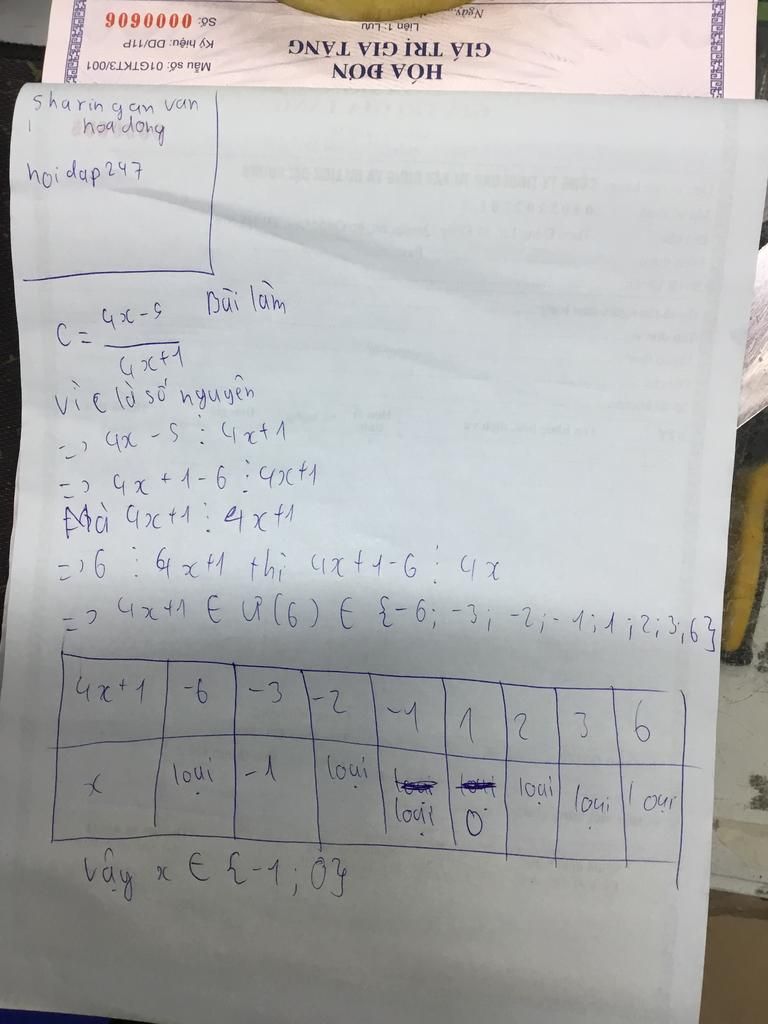 Ngày
Liên 1: Lưu
Số: 0000606
GIÁ TRỊ GIA TĂNG
Ký hiệu: DD/11P
HÓA ĐƠN
Mẫu số: 01GTKT3/001
sharingan van
hoadong
hoidap247
Bài làm
C = 4x-5 / 4x+1
Vì C là số nguyên
=> 4x - 5 ⋮ 4x+1
=> 4x + 1 - 6 ⋮ 4x+1
Mà 4x+1 ⋮ 4x+1
=> 6 ⋮ 4x+1 thì 4x+1-6 ⋮ 4x
=> 4x+1 ∈ Ư(6) ∈ {-6; -3; -2; -1; 1; 2; 3; 6}
4x+1 -6 -3 -2 -1 1 2 3 6
x loại -1 loại loại 0 loại loại loại
Vậy x ∈ {-1; 0}